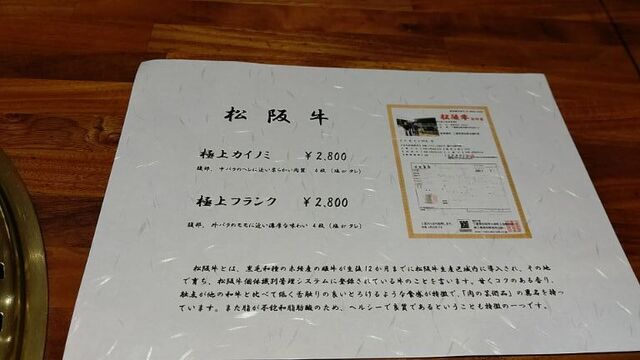 松阪牛
極上カイノミ ￥2,800
腹部、中バラのヘレに近い柔らかい肉質 4枚（塩orタレ）
極上フランク ￥2,800
腹部、外バラのモモに近い濃厚な味わい 4枚（塩orタレ）
松阪牛
松阪牛とは、黒毛和種の未経産の雌牛が生後12か月までに松阪牛生産区域内に導入され、その地
で育ち、松阪牛個体識別管理システムに登録されている牛のことを言います。甘くコクのある香り、
融点が他の和牛と比べて低く舌触りの良いとろけるような食感が特徴で、「肉の芸術品」の異名を持っ
ています。また脂が不飽和脂肪酸のため、ヘルシーで良質であるということも特徴の一つです。